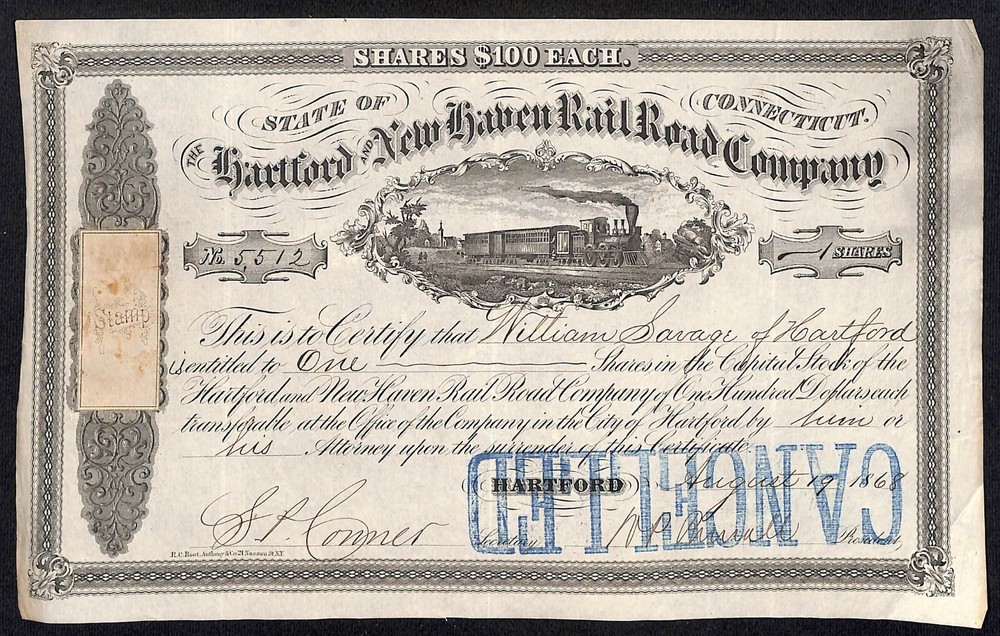 SHARES $100 EACH.
STATE OF CONNECTICUT.
THE Hartford AND New Haven Rail Road Company
No. 5,512
1 SHARES
Stamp
This is to Certify that William Savage of Hartford
is entitled to One Shares in the Capital Stock of the
Hartford and New Haven Rail Road Company of One Hundred Dollars each
transferable at the Office of the Company in the City of Hartford by him or
his Attorney upon the surrender of this Certificate.
HARTFORD August 19 1868
CANCELLED
Secretary President
R.C. Root, Anthony & Co. 21 Nassau St. N.Y.